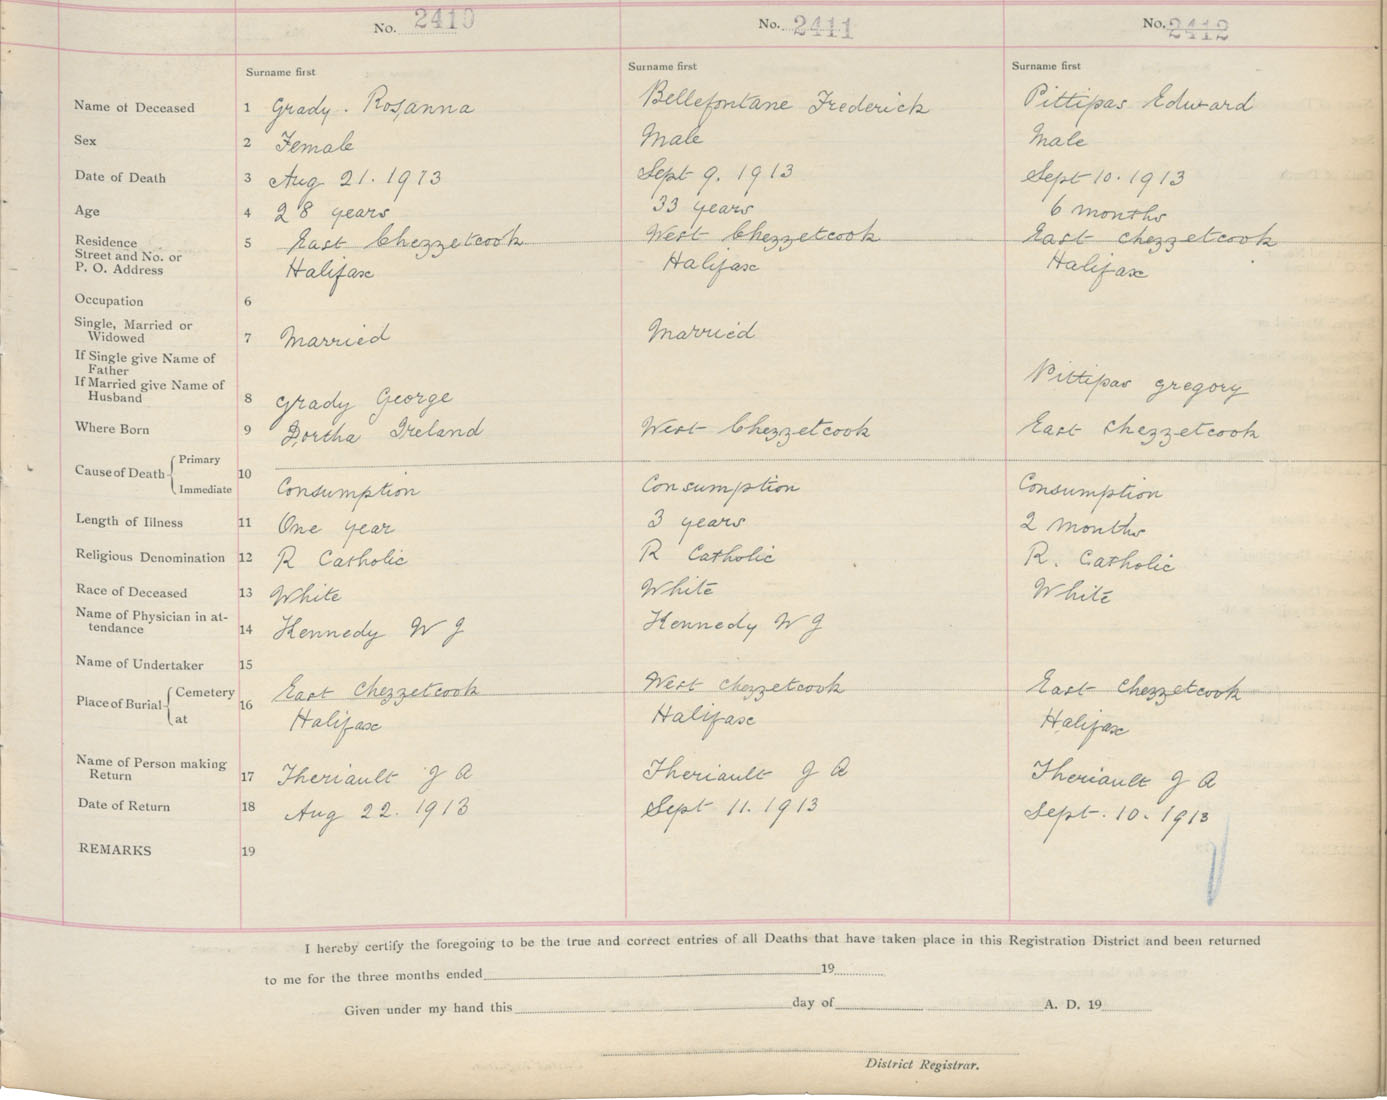 No. 2410 No. 2411 No. 2412
Surname first Surname first Surname first
Name of Deceased 1 Grady. Rosanna Bellefontane Frederick Pittipas Edward
Sex 2 Female Male Male
Date of Death 3 Aug 21. 1913 Sept 9. 1913 Sept 10. 1913
Age 4 28 years 33 years 6 months
Residence 5 East Chezzetcook West Chezzetcook East Chezzetcook
Street and No. or
P. O. Address Halifax Halifax Halifax
Occupation 6
Single, Married or
Widowed 7 Married Married
If Single give Name of
Father
If Married give Name of Pittipas Gregory
Husband 8 Grady George
Where Born 9 Ireland West Chezzetcook East Chezzetcook
Cause of Death Primary 10
Immediate Consumption Consumption Consumption
Length of Illness 11 One year 3 years 2 months
Religious Denomination 12 R Catholic R Catholic R. Catholic
Race of Deceased 13 White White White
Name of Physician in at-
tendance 14 Kennedy W J Kennedy W J
Name of Undertaker 15
Place of Burial Cemetery 16 East Chezzetcook West Chezzetcook East Chezzetcook
at Halifax Halifax Halifax
Name of Person making
Return 17 Theriault J A Theriault J A Theriault J A
Date of Return 18 Aug 22. 1913 Sept 11. 1913 Sept. 10. 1913
REMARKS 19
I hereby certify the foregoing to be the true and correct entries of all Deaths that have taken place in this Registration District and been returned
to me for the three months ended 19
Given under my hand this day of A. D. 19
District Registrar.